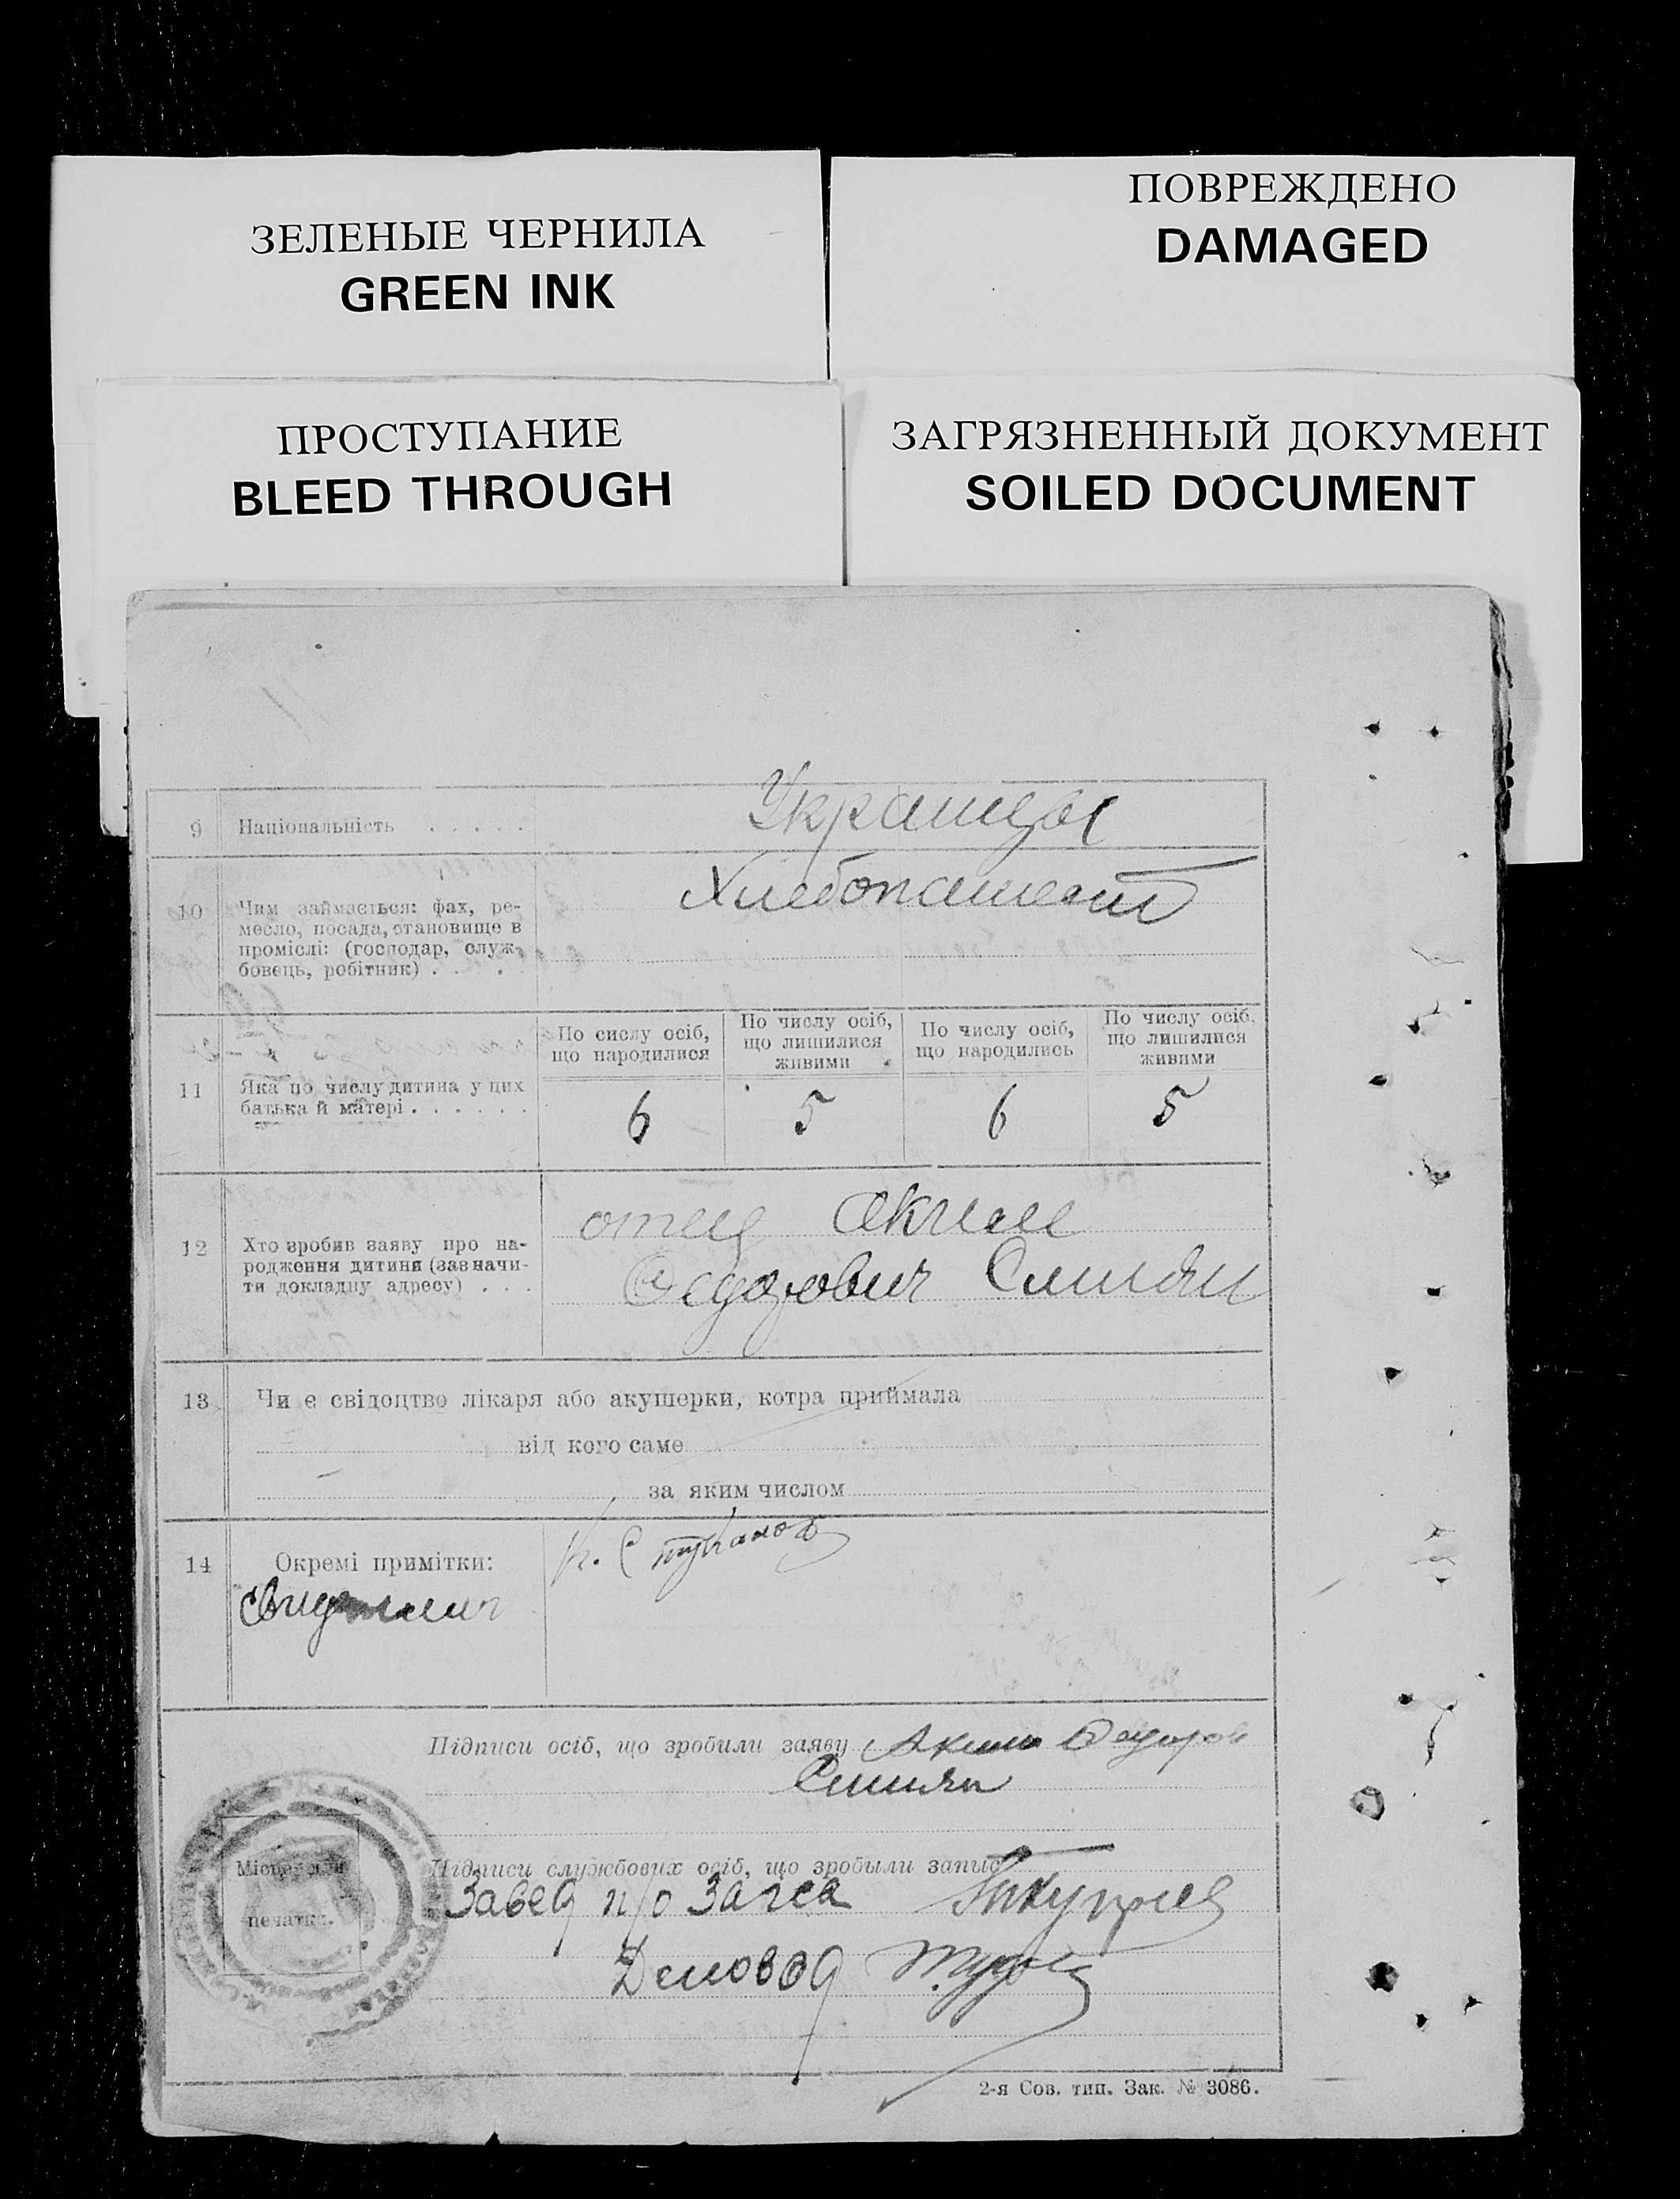 ЗЕЛЕНЫЕ ЧЕРНИЛА
GREEN INK
ПОВРЕЖДЕНО
DAMAGED
ПРОСТУПАНИЕ
BLEED THROUGH
ЗАГРЯЗНЕННЫЙ ДОКУМЕНТ
SOILED DOCUMENT
9 Національність . . . . .
10 Чим займається: фах, ре-
месло, посада, становище в
промислі: (господар, служ-
бовець, робітник) . . .
11 Яка по числу дитина у цих
батька й матері . . . . . .
По сислу осіб,
що народилися
По числу осіб,
що лишилися
живими
По числу осіб,
що народились
По числу осіб,
що лишилися
живими
6 5 6 5
12 Хто зробив заяву про на-
родження дитини (зазначи-
ти докладну адресу) . . .
отец Аким
Федорович
13 Чи є свідоцтво лікаря або акушерки, котра приймала
від кого саме
за яким числом
14 Окремі примітки:
Підписи осіб, що зробили заяву Аким Федоров
Місце для
печатки.
Підписи службових осіб, що зробыли запис
Завед п/о Загса
Деловод
2-я Сов. тип. Зак. № 3086.